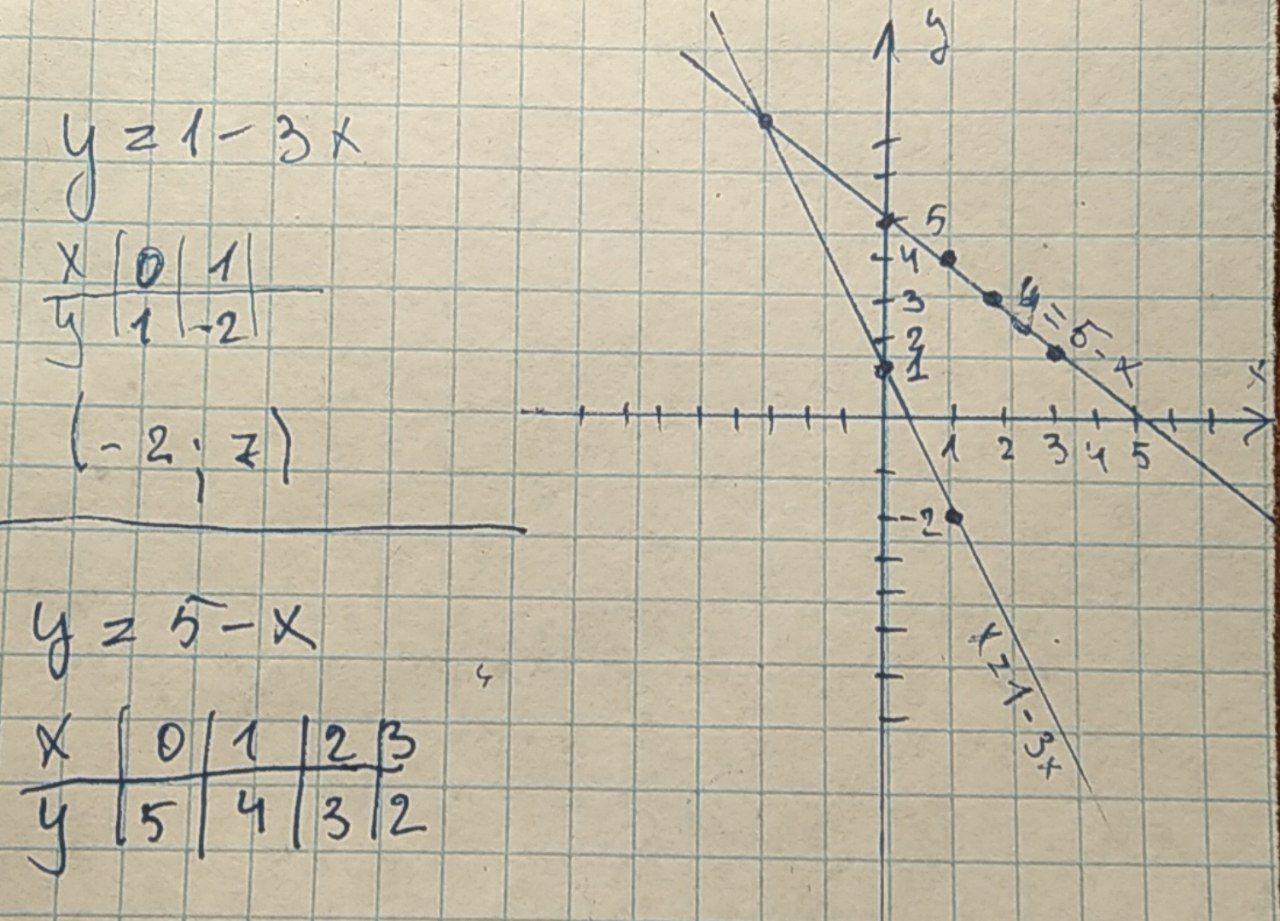 y = 1 - 3x
x | 0 | 1 |
y | 1 | -2 |
(-2; 7)
y = 5 - x
x | 0 | 1 | 2 | 3
y | 5 | 4 | 3 | 2
y
5
4
3
2
1
-2
1 2 3 4 5
x
y = 5 - x
x = 1 - 3x